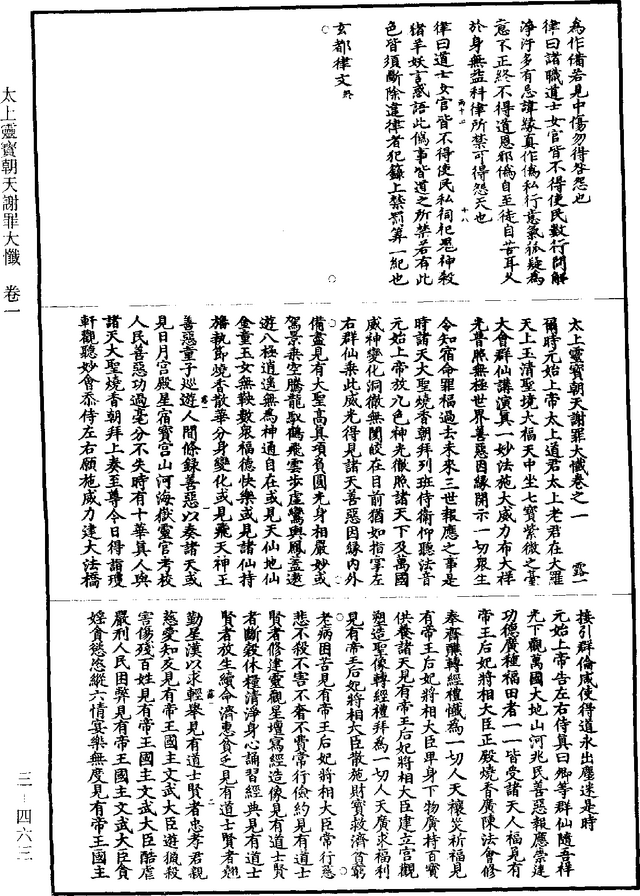 為作備若見中傷勿得咎怨也
律曰諸職道士女官皆不得使民數行問解
淨汙多有忌諱緣真作偽私行意氣狐疑為
意不正終不得道恩邪偽自至徒自苦耳災
於身無益科律所禁可得怨天也
律曰道士女官皆不得使民私祠祀鬼神殺
豬羊妖言惑語此偽事皆道之所禁若有此
色皆須斷除違律者犯籙上禁罰算一紀也
玄都律文終
太上靈寶朝天謝罪大懺卷之一
爾時元始上帝太上道君太上老君在大羅
天上玉清聖境大福天中坐七寶紫微之臺
大會群仙講演真一妙法施大威力布大祥
光普照無極世界善惡因緣開示一切眾生
令知宿命罪福過去未來三世報應之事是
時諸天大聖燒香朝拜列班侍衛仰聽法音
元始上帝放九色神光徹照諸天下及萬國
威神變化洞徹無閡皎在目前猶如指掌左
右群仙乘此威光得見諸天善惡因緣內外
備盡見有大聖高真項負圓光身相嚴妙或
駕景乘空騰龍馭鶴飛雲步虛鸞輿鳳蓋遨
遊八極逍遙無為神通自在或見天仙地仙
金童玉女無鞅數眾福德快樂或見諸仙持
旛執節燒香散華分身變化或見飛天神王
善惡童子巡遊人間條錄善惡以奏諸天或
見日月宮殿星宿寶宮山河海嶽靈官考校
人民善惡功過毫分不失時有十華真人與
諸天大聖燒香朝拜上奏至尊今日得詣瓊
軒觀聽妙會忝侍左右願施威力建大法橋
接引群倫咸使得道永出塵迷是時
元始上帝告左右侍真曰卿等群仙隨吾祥
光下觀萬國大地山河兆民善惡報應崇建
功德廣種福田者一一皆受諸天人福見有
帝王后妃將相大臣正殿燒香廣陳法會修
奉齋醮轉經禮懺為一切人天禳災祈福見
有帝王后妃將相大臣卑身下物廣持百寶
供養諸天見有帝王后妃將相大臣建立宮觀
塑造聖像轉經禮拜為一切人天廣求福利
見有帝王后妃將相大臣散施財寶救濟貧窮
老病困苦見有帝王后妃將相大臣常行慈
悲不殺不害不奢不費常行儉約見有道士
賢者修建靈觀星壇寫經造像見有道士賢
者斷穀休糧清淨身心誦習經典見有道士
賢者放生續命濟惠貧乏見有道士賢者翹
勤星漢以求輕舉見有道士賢者忠孝君親
慈愛知友見有帝王國主文武大臣遊獵殺
害傷殘百姓見有帝王國主文武大臣酷虐
嚴刑人民困弊見有帝王國主文武大臣貪
婬食慾恣縱六情宴樂無度見有帝王國主
太上靈寶朝天謝罪大懺 卷一
三-四六三